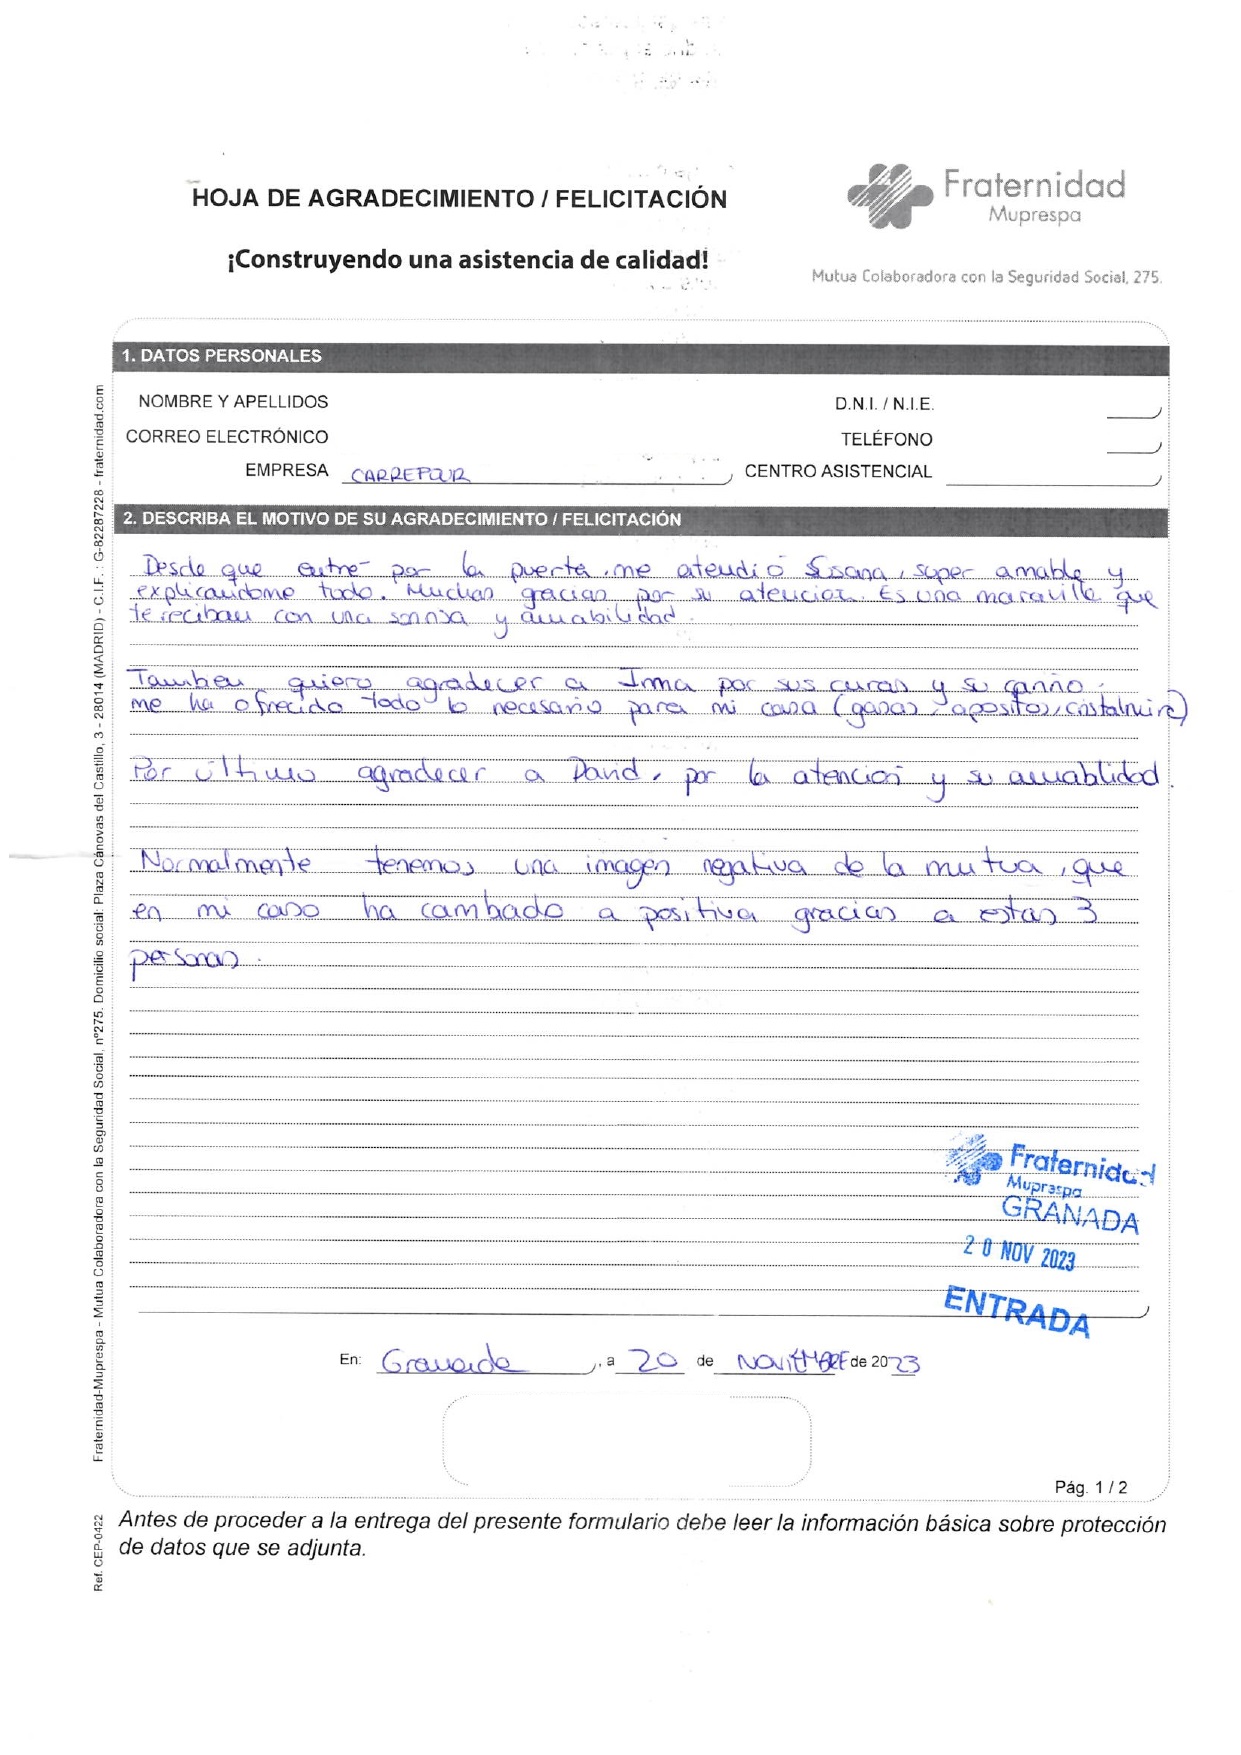 HOJA DE AGRADECIMIENTO / FELICITACIÓN
¡Construyendo una asistencia de calidad!
Fraternidad
Muprespa
Mutua Colaboradora con la Seguridad Social, 275.
1. DATOS PERSONALES
NOMBRE Y APELLIDOS
D.N.I. / N.I.E.
CORREO ELECTRÓNICO
TELÉFONO
EMPRESA CARREFOUR
CENTRO ASISTENCIAL
2. DESCRIBA EL MOTIVO DE SU AGRADECIMIENTO / FELICITACIÓN
Desde que entre por la puerta, me atendió , super amable y
explicandome todo. Muchas gracias por su atencion. Es una maravilla que
te reciban con una sonrisa y amabilidad.
Tambien quiero agradecer a Inma por sus curas y su cariño.
me ha ofrecido todo lo necesario para mi casa (gasas, apositos, cristalmina)
Por último agradecer a David, por la atención y su amablidad.
Normalmente tenemos una imagen negativa de la mutua, que
en mi caso ha cambado a positiva gracias a estas 3
personas.
Fraternidad
Muprespa
GRANADA
20 NOV 2023
ENTRADA
En: Granada, a 20 de NOVIEMBRE de 2023
Pág. 1 / 2
Antes de proceder a la entrega del presente formulario debe leer la información básica sobre protección
de datos que se adjunta.
Fraternidad-Muprespa - Mutua Colaboradora con la Seguridad Social, nº275. Domicilio social: Plaza Cánovas del Castillo, 3 - 28014 (MADRID) - C.I.F. : G-82287228 - fraternidad.com
Ref. CEP-0422